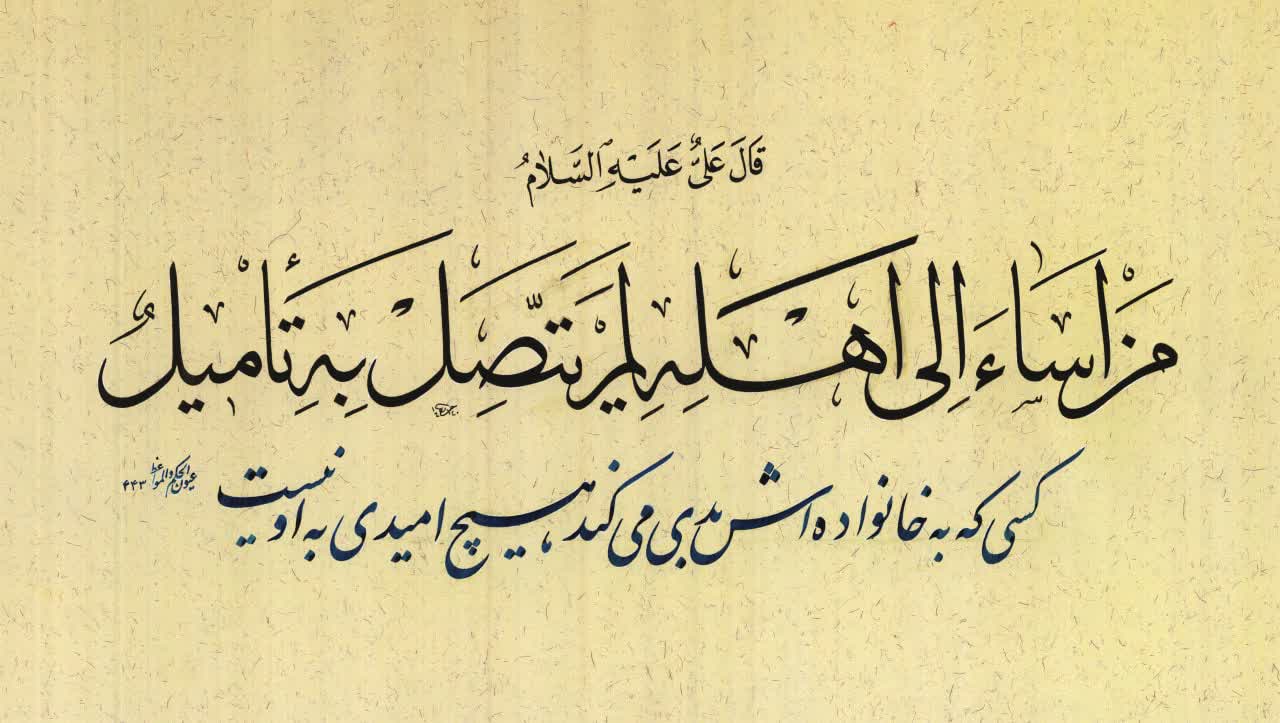 قَالَ عَلیٌّ عَلَیْهِ ٱلسَّلَامُ
مَنْ اَسَاءَ اِلی اَهْلِهِ لَمْ یَتَّصِلْ بِهِ تَأْمیلٌ
کسی که به خانواده اش بدی می کند هیچ امیدی به او نیست
عیون الحکم والمواعظ ۴۴۳